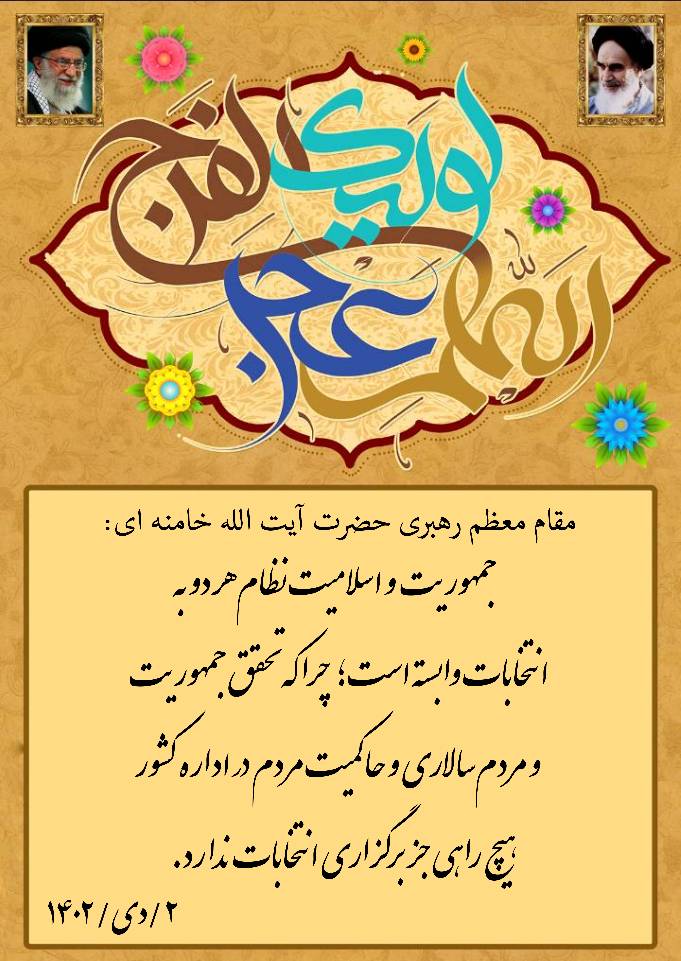 اللهم عجل لولیک الفرج
مقام معظم رهبری حضرت آیت الله خامنه ای:
جمهوریت و اسلامیت نظام هر دو به
انتخابات وابسته است؛ چرا که تحقق جمهوریت
و مردم سالاری و حاکمیت مردم در اداره کشور
هیچ راهی جز برگزاری انتخابات ندارد.
۲/دی/۱۴۰۲